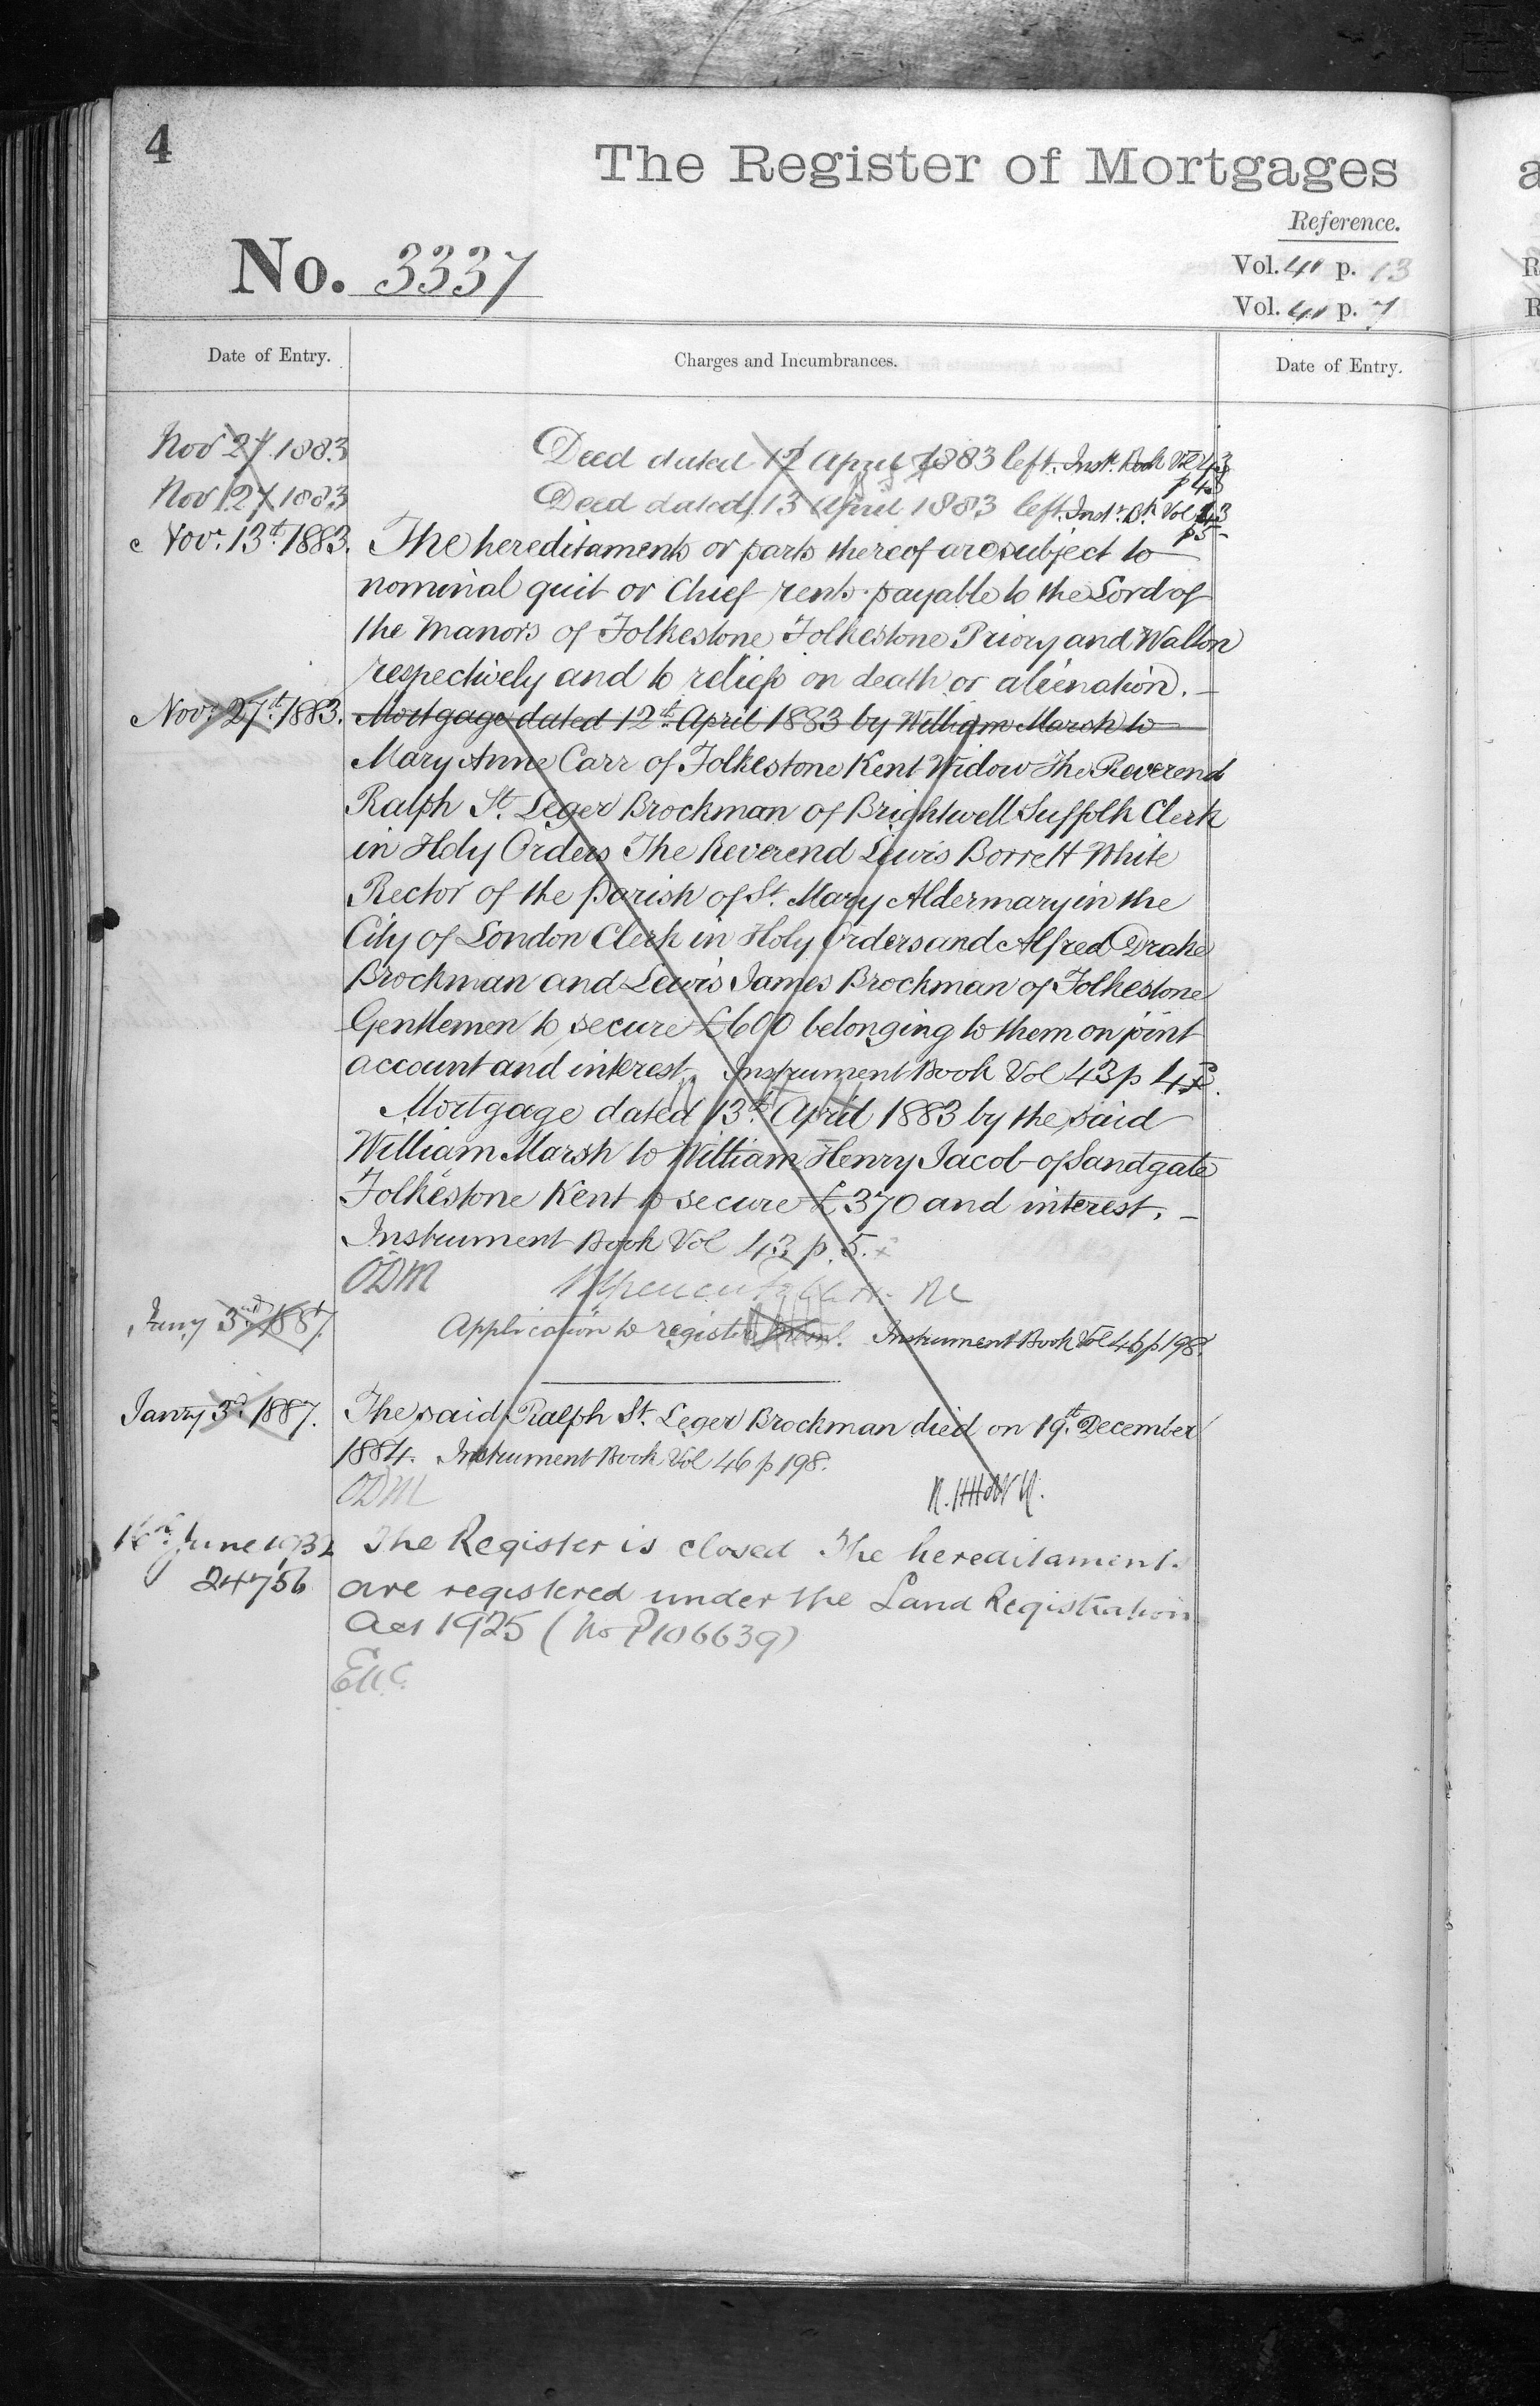 4
The Register of Mortgages
Reference.
No. 3337
Vol. 41 p. 13
Vol. 41 p. 7
Date of Entry.
Charges and Incumbrances.
Date of Entry.
Nov 27 1883
Deed dated 12 April 1883 left. Inst. Book Vol 43
p 4
Nov 27 1883
Deed dated 13 April 1883 left. Instr. Bk Vol 43
p 5
Novr. 13th 1883.
The hereditaments or parts thereof are subject to
nominal quit or Chief rents payable to the Lord of
the Manors of Folkestone Folkestone Priory and Walton
respectively and to reliefs on death or alienation. —
Novr. 27th 1883.
Mortgage dated 12th April 1883 by William Marsh to
Mary Anne Carr of Folkestone Kent Widow The Reverend
Ralph St. Leger Brockman of Brightwell Suffolk Clerk
in Holy Orders The Reverend Lewis Borrett White
Rector of the Parish of St. Mary Aldermary in the
City of London Clerk in Holy Orders and Alfred Drake
Brockman and Lewis James Brockman of Folkestone
Gentlemen to secure £600 belonging to them on joint
account and interest. Instrument Book Vol 43 p 4
Mortgage dated 13th April 1883 by the said
William Marsh to William Henry Jacob of Sandgate
Folkestone Kent to secure £370 and interest. —
Instrument Book Vol 43 p. 5.
ODM
Jany 3rd 1887.
Application to register Instrument Book Vol 46 p 198.
Janry 3d. 1887.
The said Ralph St. Leger Brockman died on 19th December
1884. Instrument Book Vol 46 p 198.
ODM
16th June 1932
The Register is closed The hereditaments
24756
are registered under the Land Registration
Act 1925 (No P106639)